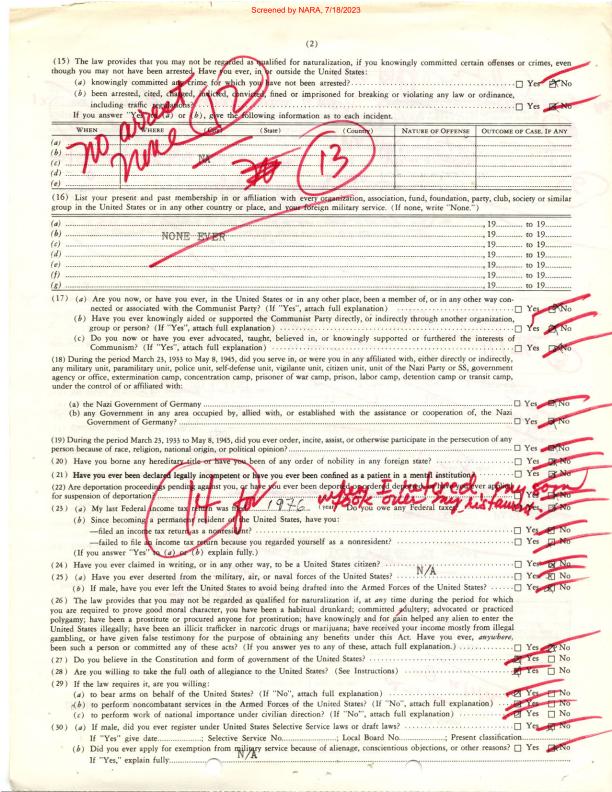 Screened by NARA, 7/18/2023
(2)
(15) The law provides that you may not be regarded as qualified for naturalization, if you knowingly committed certain offenses or crimes, even
though you may not have been arrested. Have you ever, in or outside the United States:
(a) knowingly committed any crime for which you have not been arrested? ☐ Yes ☒ No
(b) been arrested, cited, charged, indicted, convicted, fined or imprisoned for breaking or violating any law or ordinance,
including traffic regulations? ☐ Yes ☒ No
If you answer "Yes" to (a) or (b), give the following information as to each incident.
12
WHEN WHERE (City) (State) (County) NATURE OF OFFENSE OUTCOME OF CASE, IF ANY
no arrest
none
13
(a)
(b)
(c) NA
(d)
(e)
(16) List your present and past membership in or affiliation with every organization, association, fund, foundation, party, club, society or similar
group in the United States or in any other country or place, and your foreign military service. (If none, write "None.")
(a) , 19 to 19
(b) NONE EVER , 19 to 19
(c) , 19 to 19
(d) , 19 to 19
(e) , 19 to 19
(f) , 19 to 19
(g) , 19 to 19
(17) (a) Are you now, or have you ever, in the United States or in any other place, been a member of, or in any other way con-
nected or associated with the Communist Party? (If "Yes", attach full explanation) ☐ Yes ☒ No
(b) Have you ever knowingly aided or supported the Communist Party directly, or indirectly through another organization,
group or person? (If "Yes", attach full explanation) ☐ Yes ☒ No
(c) Do you now or have you ever advocated, taught, believed in, or knowingly supported or furthered the interests of
Communism? (If "Yes", attach full explanation) ☐ Yes ☒ No
(18) During the period March 23, 1933 to May 8, 1945, did you serve in, or were you in affiliated with, either directly or indirectly,
any military unit, paramilitary unit, police unit, self-defense unit, vigilante unit, citizen unit, unit of the Nazi Party or SS, government
agency or office, extermination camp, concentration camp, prisoner of war camp, prison, labor camp, detention camp or transit camp,
under the control of or affiliated with:
(a) the Nazi Government of Germany ☐ Yes ☒ No
(b) any Government in any area occupied by, allied with, or established with the assistance or cooperation of, the Nazi
Government of Germany? ☐ Yes ☒ No
(19) During the period March 23, 1933 to May 8, 1945, did you ever order, incite, assist, or otherwise participate in the persecution of any
person because of race, religion, national origin, or political opinion? ☐ Yes ☒ No
(20) Have you borne any hereditary title or have you been of any order of nobility in any foreign state? ☐ Yes ☒ No
(21) Have you ever been declared legally incompetent or have you ever been confined as a patient in a mental institution? ☐ Yes ☒ No
(22) Are deportation proceedings pending against you, or have you ever been deported or ordered deported, or have you ever applied
for suspension of deportation? ☐ Yes ☒ No
14 for
when I retired my son
took over my
(23) (a) My last Federal income tax return was filed 1976 (year) Do you owe any Federal taxes? ☐ Yes ☒ No
(b) Since becoming a permanent resident of the United States, have you:
—filed an income tax return as a nonresident? ☐ Yes ☒ No
—failed to file an income tax return because you regarded yourself as a nonresident? ☐ Yes ☒ No
(If you answer "Yes" to (a) or (b) explain fully.)
(24) Have you ever claimed in writing, or in any other way, to be a United States citizen? ☐ Yes ☒ No
(25) (a) Have you ever deserted from the military, air, or naval forces of the United States? N/A ☐ Yes ☒ No
(b) If male, have you ever left the United States to avoid being drafted into the Armed Forces of the United States? ☐ Yes ☒ No
(26) The law provides that you may not be regarded as qualified for naturalization if, at any time during the period for which
you are required to prove good moral character, you have been a habitual drunkard; committed adultery; advocated or practiced
polygamy; have been a prostitute or procured anyone for prostitution; have knowingly and for gain helped any alien to enter the
United States illegally; have been an illicit trafficker in narcotic drugs or marijuana; have received your income mostly from illegal
gambling, or have given false testimony for the purpose of obtaining any benefits under this Act. Have you ever, anywhere,
been such a person or committed any of these acts? (If you answer yes to any of these, attach full explanation.) ☐ Yes ☒ No
(27) Do you believe in the Constitution and form of government of the United States? ☒ Yes ☐ No
(28) Are you willing to take the full oath of allegiance to the United States? (See Instructions) ☒ Yes ☐ No
(29) If the law requires it, are you willing:
(a) to bear arms on behalf of the United States? (If "No", attach full explanation) ☒ Yes ☐ No
(b) to perform noncombatant services in the Armed Forces of the United States? (If "No", attach full explanation) ☒ Yes ☐ No
(c) to perform work of national importance under civilian direction? (If "No", attach full explanation) ☒ Yes ☐ No
(30) (a) If male, did you ever register under United States Selective Service laws or draft laws? ☐ Yes ☒ No
If "Yes" give date ; Selective Service No. ; Local Board No. ; Present classification
(b) Did you ever apply for exemption from military service because of alienage, conscientious objections, or other reasons? ☐ Yes ☒ No
N/A
If "Yes," explain fully